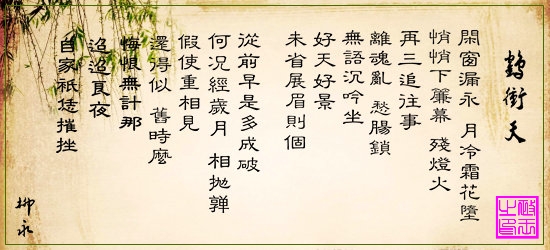 鶴衝天
閑窗漏永 月冷霜花墮
悄悄下簾幕 殘燈火
再三追往事
離魂亂 愁腸鎖
無語沉吟坐
好天好景
未省展眉則個
從前早是多成破
何況經歲月 相拋嚲
假使重相見
還得似 舊時麼
悔恨無計那
迢迢良夜
自家祇恁摧挫
柳永